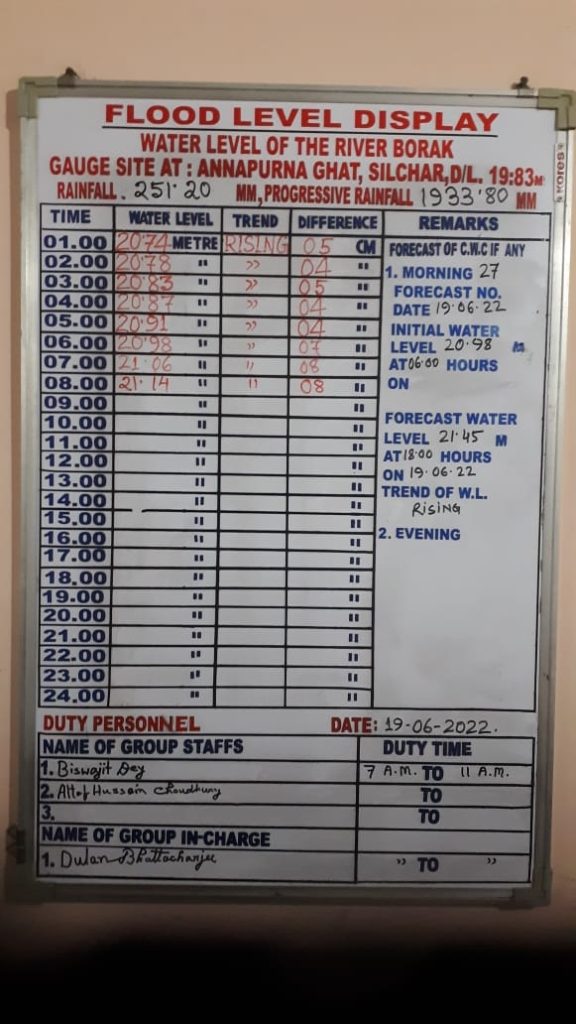 FLOOD LEVEL DISPLAY
WATER LEVEL OF THE RIVER BORAK
GAUGE SITE AT : ANNAPURNA GHAT, SILCHAR,D/L. 19:83M
RAINFALL. 251·20 MM,PROGRESSIVE RAINFALL 1933·80 MM
kores
TIME WATER LEVEL TREND DIFFERENCE REMARKS
01.00 20·74 METRE RISING 05 CM
02.00 20·78 " " 04 "
03.00 20·83 " " 05 "
04.00 20·87 " " 04 "
05.00 20·91 " " 04 "
06.00 20·98 " " 07 "
07.00 21·06 " " 08 "
08.00 21·14 " " 08 "
09.00 " "
10.00 " "
11.00 " "
12.00 " "
13.00 " "
14.00 " "
15.00 " "
16.00 " "
17.00 " "
18.00 " "
19.00 " "
20.00 " "
21.00 " "
22.00 " "
23.00 " "
24.00 " "
FORECAST OF C.W.C IF ANY
1. MORNING 27
FORECAST NO.
DATE 19·06·22
INITIAL WATER
LEVEL 20·98 M
AT 06·00 HOURS
ON
FORECAST WATER
LEVEL 21·45 M
AT 18·00 HOURS
ON 19·06·22
TREND OF W.L.
RiSING
2. EVENING
DUTY PERSONNEL DATE: 19-06-2022.
NAME OF GROUP STAFFS DUTY TIME
1. Biswajit Dey 7 A.M. TO 11 A.M.
2. Altaf Hussain Choudhury TO
3. TO
NAME OF GROUP IN-CHARGE
1. Dulan Bhattacharjee " TO "